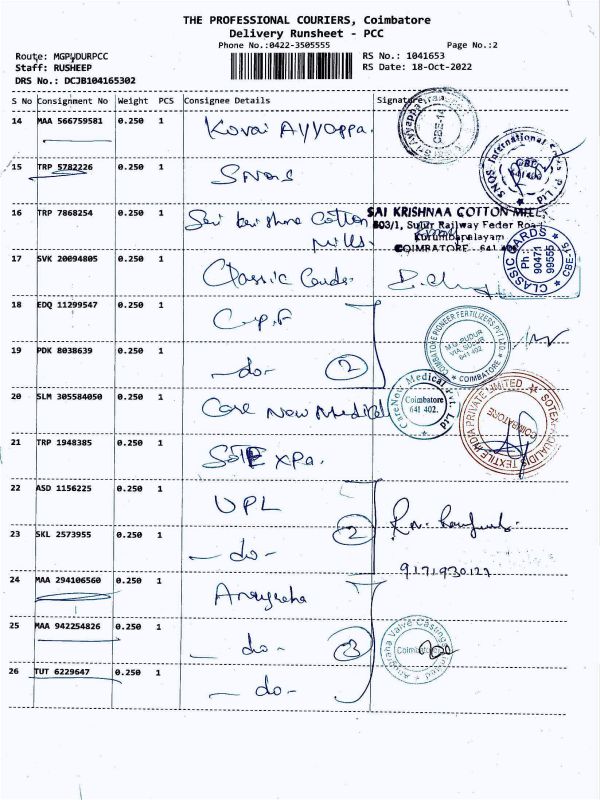 THE PROFESSIONAL COURIERS, Coimbatore
Delivery Runsheet - PCC
Phone No.:0422-3505555
Page No.:2
Route: MGPUDURPCC
RS No.: 1041653
Staff: RUSHEEP
RS Date: 18-Oct-2022
DRS No.: DCJB104165302
S No Consignment No Weight PCS Consignee Details Signature
14 MAA 566759581 0.250 1 Kovai Ayyappa.
CBE-14
15 TRP 5782226 0.250 1 SNQS
SNQS International
16 TRP 7868254 0.250 1 Sai krishna Cotton Mills.
SAI KRISHNAA COTTON MILLS
803/1, Sulur Railway Feder Road
Kurumbapalayam
COIMBATORE 641
17 SVK 20094805 0.250 1 Classic Cards.
CLASSIC CARDS CBE-15
Ph 90471 99555
18 EDQ 11299547 0.250 1 C.P.F
COIMBATORE PIONEER FERTILIZERS PVT LTD.
COIMBATORE
19 PDK 8038639 0.250 1 -do- 2
20 SLM 305584050 0.250 1 Care New Medical
CareNow Medical Pvt. Ltd
Coimbatore
641 402.
21 TRP 1948385 0.250 1
PRIVATE LIMITED
COIMBATORE
22 ASD 1156225 0.250 1 UPL
23 SKL 2573955 0.250 1 -do- 2
9171930127
24 MAA 294106560 0.250 1 Anugraha
25 MAA 942254826 0.250 1 -do- 3
Anugraha Valve Castings Limited
Coimbatore
26 TUT 6229647 0.250 1 -do-